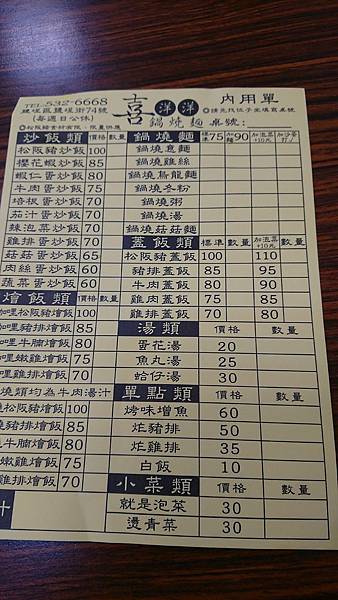 TEL:532-6668
鹽埕區鹽埕街74號
(每週日公休)
喜洋洋
鍋燒麵
內用單
◎請先找位子坐填寫桌號
桌號:
◎松阪豬食材有限,限量供應
炒飯類 價格 數量
松阪豬炒飯 100
櫻花蝦炒飯 85
蝦仁蛋炒飯 80
牛肉蛋炒飯 75
培根蛋炒飯 70
茄汁蛋炒飯 70
辣泡菜炒飯 70
雞排蛋炒飯 70
菇菇蛋炒飯 65
肉絲蛋炒飯 60
蔬菜蛋炒飯 60
燴飯類 價格 數量
咖哩松阪豬燴飯 100
咖哩豬排燴飯 85
咖哩牛腩燴飯 80
咖哩嫩雞燴飯 75
咖哩雞排燴飯 70
燒類均為牛肉湯汁
燒松阪豬燴飯 100
燒豬排燴飯 85
燒牛腩燴飯 80
嫩雞燴飯 75
雞排燴飯 70
汁
鍋燒麵 標準75 加麵90 加泡菜+10元 加沙茶打✓
鍋燒意麵
鍋燒雞絲
鍋燒烏龍麵
鍋燒冬粉
鍋燒粥
鍋燒湯
鍋燒菇菇麵
蓋飯類 標準 數量 加泡菜+10元 數量
松阪豬蓋飯 100 110
豬排蓋飯 85 95
牛肉蓋飯 80 90
雞肉蓋飯 75 85
雞排蓋飯 70 80
湯類 價格 數量
蛋花湯 20
魚丸湯 25
蛤仔湯 30
單點類 價格 數量
烤味增魚 60
炸豬排 50
炸雞排 35
白飯 10
小菜類 價格 數量
就是泡菜 30
燙青菜 30